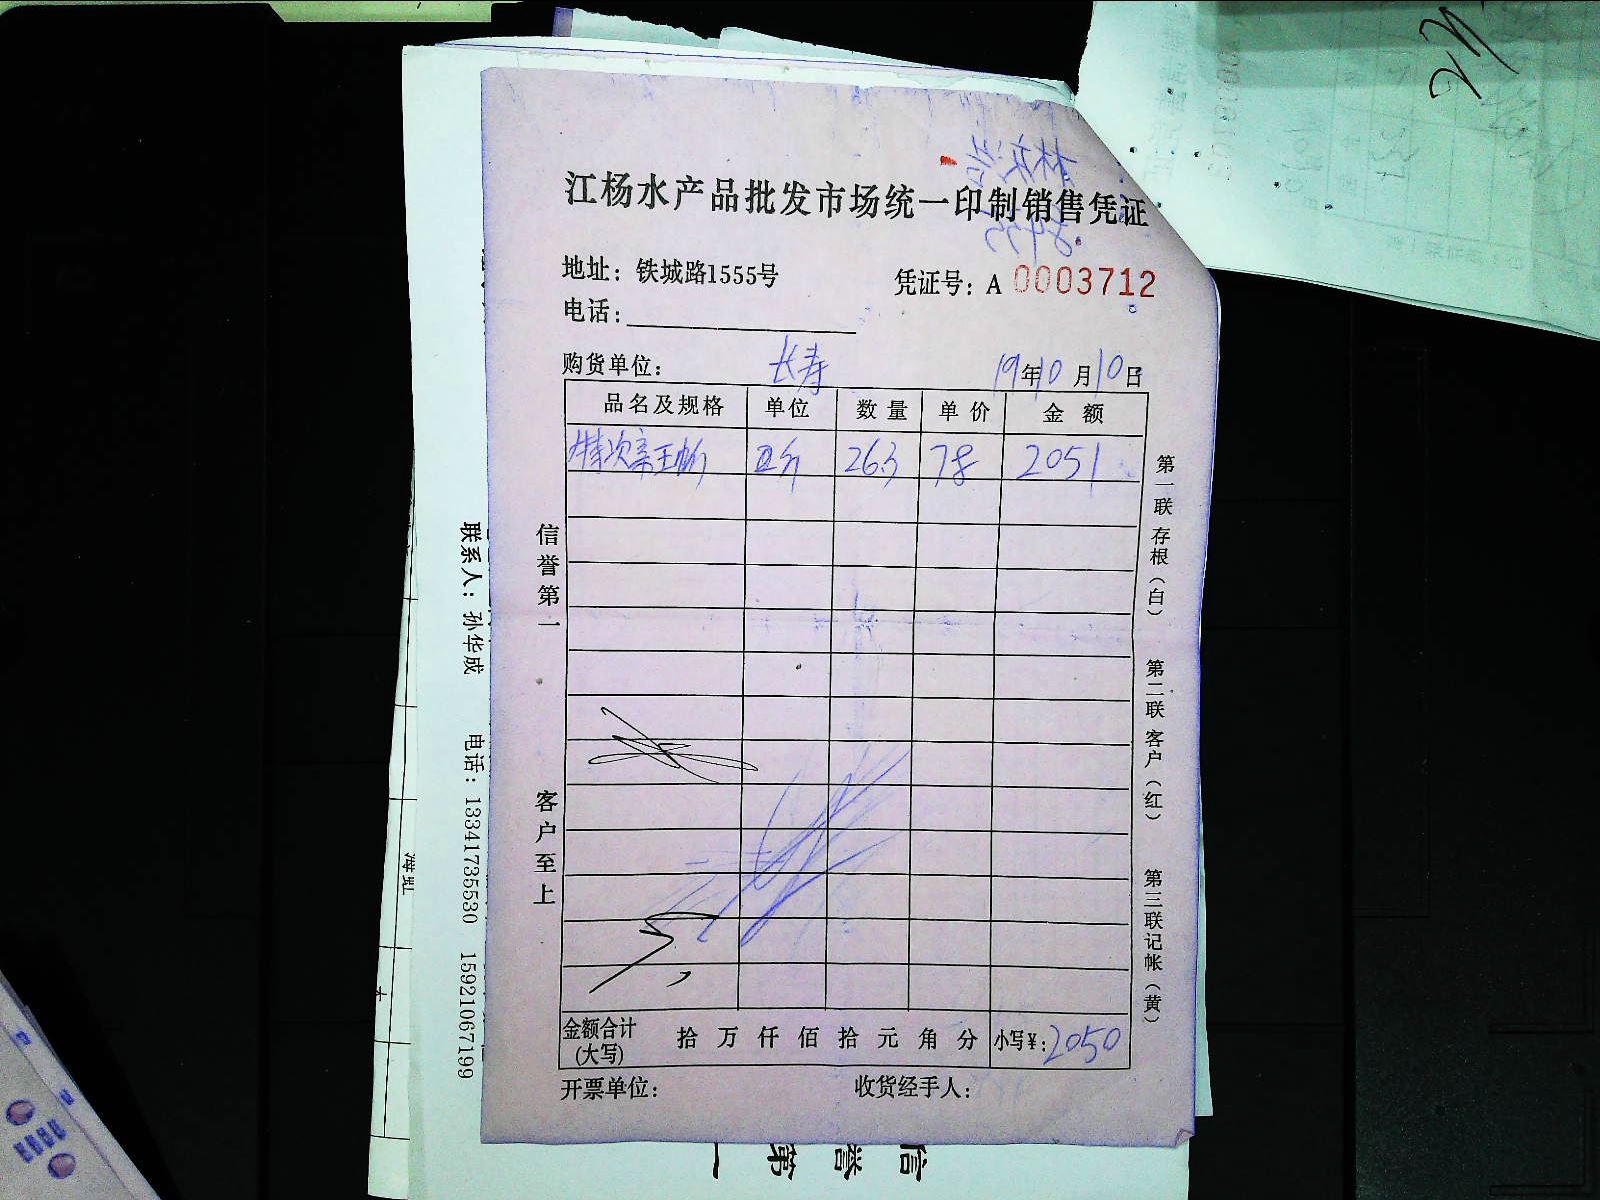 江杨水产品批发市场统一印制销售凭证
地址：铁城路1555号
凭证号：A 0003712
电话：
购货单位： 长寿
19年10月10日
品名及规格 单位 数量 单价 金额
26.3 78 2051
金额合计(大写) 拾 万 仟 佰 拾 元 角 分 小写¥：2050
开票单位： 收货经手人：
信誉第一
客户至上
第一联存根（白）
第二联客户（红）
第三联记帐（黄）
联系人：孙华成 电话：13341735530 15921067199
信誉第一